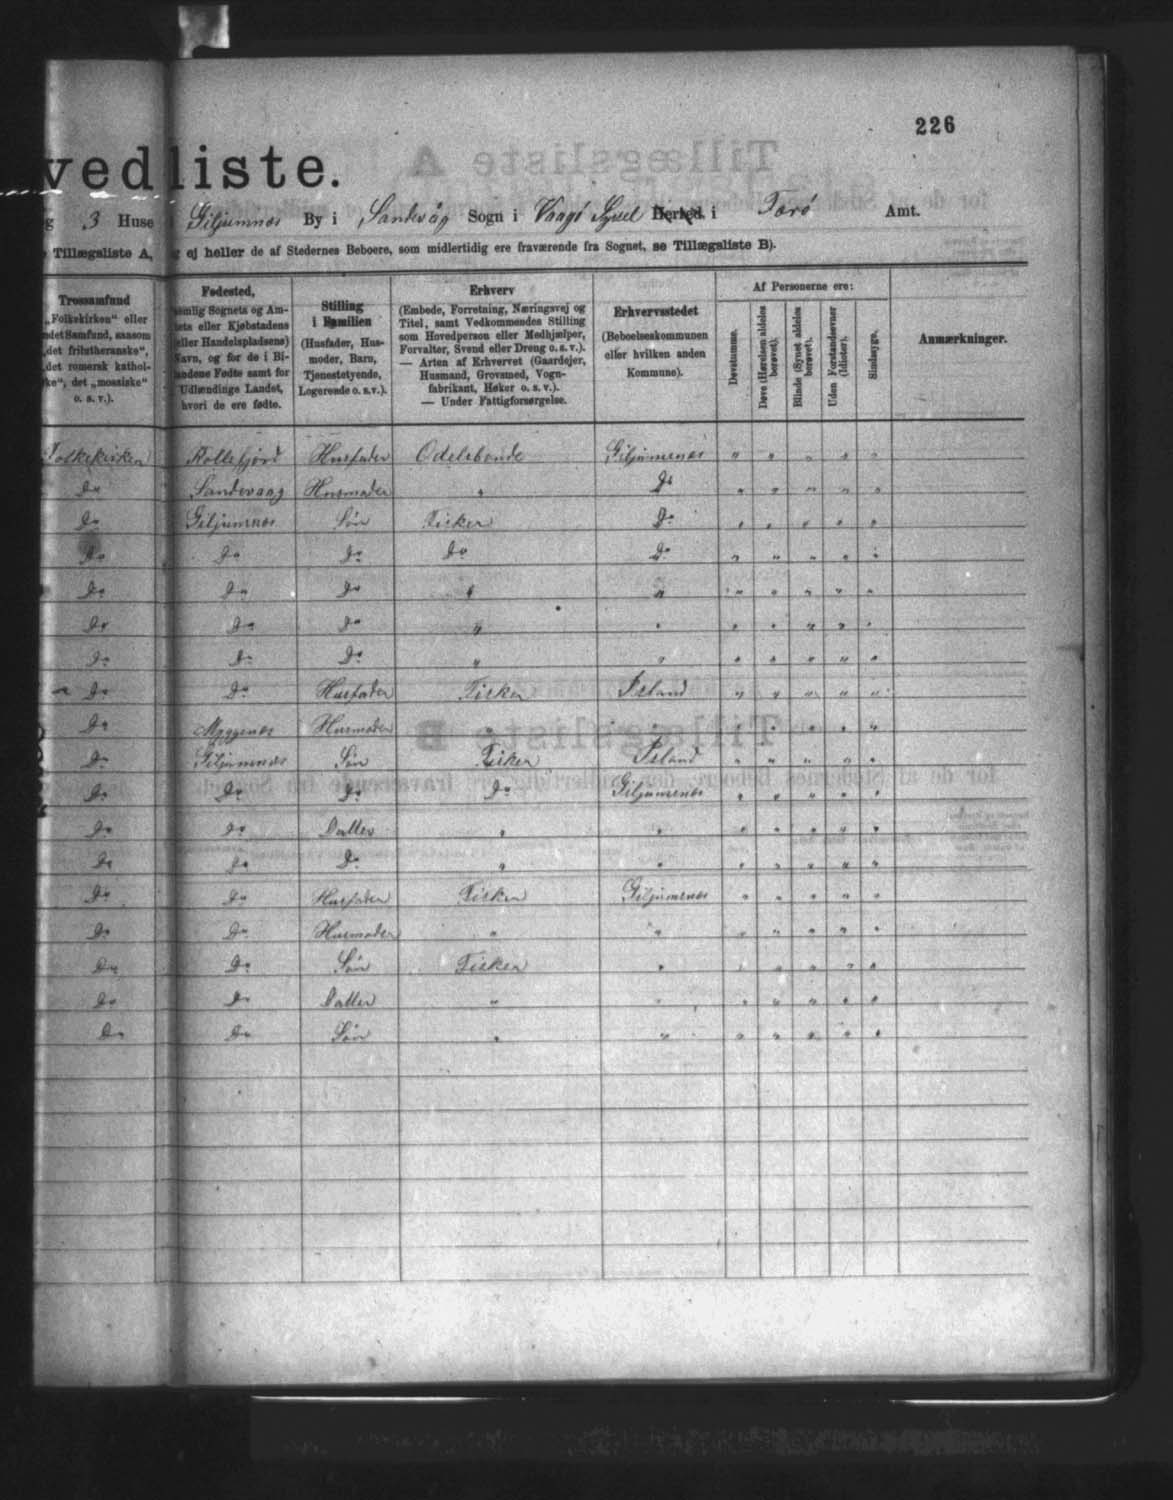 226
vedliste.
g 3 Huse i Giljumnæs By i Sandevåg Sogn i Vaagø Sysel Herred. i Færø Amt.
Tillægsliste A, og ej heller de af Stedernes Beboere, som midlertidig ere fraværende fra Sognet, se Tillægsliste B).
Trossamfund
„Folkekirken" eller
ndet Samfund, saasom
„det frilutheranske",
„det romersk kathol-
ke", det „mosaiske"
o. s. v.).
Fødested,
nemlig Sognets og Am-
tets eller Kjøbstadens
(eller Handelspladsens)
Navn, og for de i Bi-
landene Fødte samt for
Udlændinge Landet,
hvori de ere fødte.
Stilling
i Familien
(Husfader, Hus-
moder, Barn,
Tjenestetyende,
Logerende o. s. v.).
Erhverv
(Embede, Forretning, Næringsvej og
Titel, samt Vedkommendes Stilling
som Hovedperson eller Medhjælper,
Forvalter, Svend eller Dreng o. s. v.).
— Arten af Erhvervet (Gaardejer,
Husmand, Grovsmed, Vogn-
fabrikant, Høker o. s. v.).
— Under Fattigforsørgelse.
Erhvervsstedet
(Beboelseskommunen
eller hvilken anden
Kommune).
Af Personerne ere:
Døvstumme.
Døve (Hørelsen aldeles
berøvet).
Blinde (Synet aldeles
berøvet).
Uden Forstandsevner
(Idioter).
Sindssyge.
Anmærkninger.
Folkekirken Kollefjord Husfader Odelsbonde Giljumnæs " " " " "
Do Sandevaag Husmoder " Do " " " " "
Do Giljumnæs Søn Fisker Do " " " " "
Do Do Do Do Do " " " " "
Do Do Do " " " " " " "
Do Do Do " " " " " " "
Do Do Do " " " " " " "
Do Do Husfader Fisker Island " " " " "
Do Myggenæs Husmoder " " " " " " "
Do Giljumnæs Søn Fisker Island " " " " "
Do Do Do Do Giljumnæs " " " " "
Do Do Datter " " " " " " "
Do Do Do " " " " " " "
Do Do Husfader Fisker Giljumnæs " " " " "
Do Do Husmoder " " " " " " "
Do Do Søn Fisker " " " " " "
Do Do Datter " " " " " " "
Do Do Søn " " " " " " "